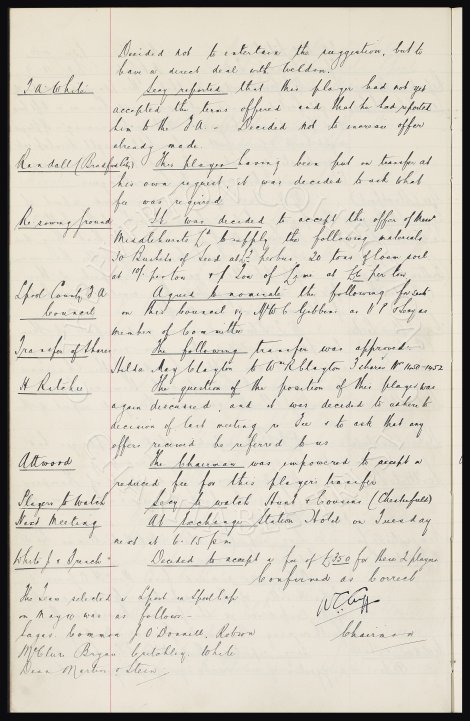 Decided not to entertain the suggestion, but to
have a direct deal with Weldon.
T. A. White Secy reported that this player had not yet
accepted the terms offered and that he had reported
him to the F A. - Decided not to increase offer
already made.
Randall (Bradford City) This player having been put on transfer at
his own request, it was decided to ask what
fee was required
Re-sowing ground It was decided to accept the offer of Messrs
Middlehursts Ld to supply the following materials
30 Bushels of seed at per bus. 20 tons of loam soil
at 10/- per ton & 1 Ton of Lime at per ton
Lpool County F A Agreed to nominate the following for seats
Council on this Council Mr W C Gibbins as V P & Secy as
member of Committee
Transfer of Shares The following transfer was approved:
Hilda May Clayton to Wm R Clayton 3 shares No 1450-1452
H Ritchie The question of the position of this player was
again discussed, and it was decided to adhere to
decision of last meeting re Fee & to ask that any
offers received be referred to us
Attwood The Chairman was empowered to accept a
reduced fee for this players transfer
Players to Watch Secy to watch Hunt & Cousins (Chesterfield)
Next Meeting At Exchange Station Hotel on Tuesday
next at 6.15 pm
White J & French Decided to accept a fee of £350 for these 2 players
Confirmed as Correct
The Team selected v Lpool in Lpool Cup
on May was as follows.-
Chairman
Sagar. Common J. O'Donnell. Robson
McClure Bryan Critchley. White
Dean Martin & Stein.